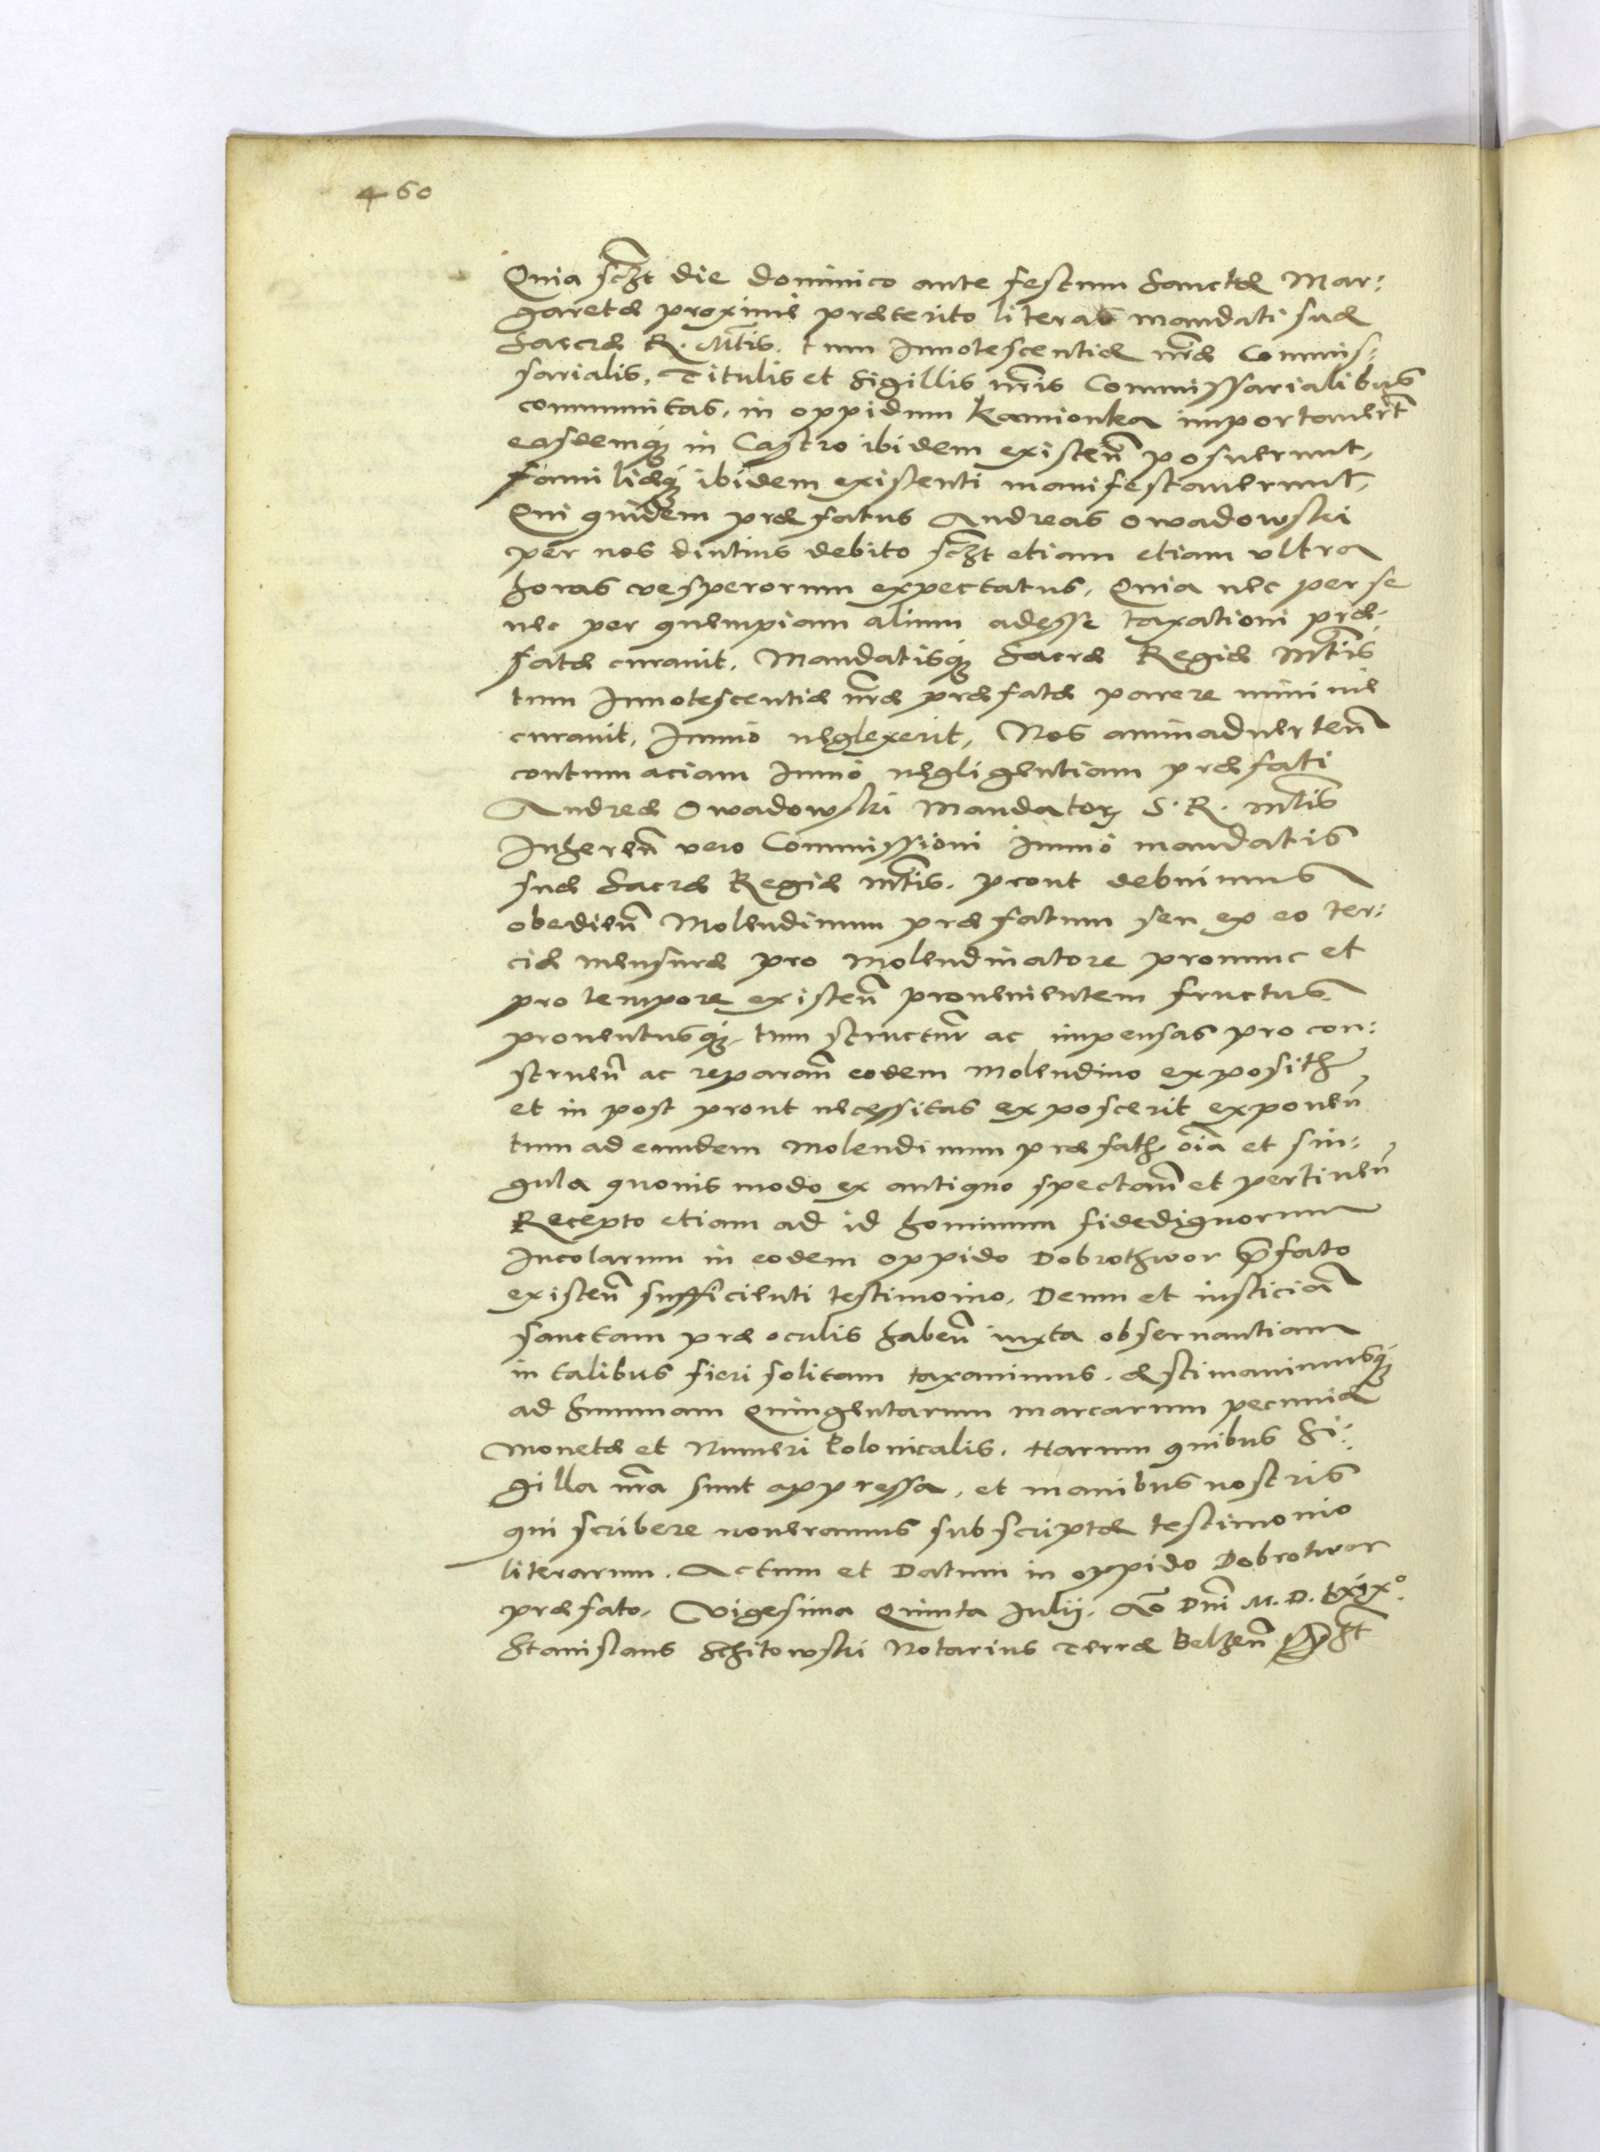 460
Quia sczt die dominico ante festum Sanctæ Mar:
garetæ proximè præterito literas mandati suæ
Sacræ R. Mtis. tum Innotescentiæ nræ Commis:
sarialis, Titulis et Sigillis nris Commissarialibus
communitas, in oppidum Kamionka importauert
easdemq; in Castro ibidem existen̄ posuerunt,
familiæq; ibidem existenti manifestauerunt,
Qui quidem præfatus Andreas Owadowski
per nos diutius debito sczt etiam etiam vltra
horas vesperorum expectatus, Quia nec per se
nec per quempiam alium adesse taxationi præ:
fatæ curauit, Mandatisq; Sacræ Regiæ Mtis
tum Innotescentiæ nræ præfatæ parere minime
curauit, Immò neglexerit, Nos animaduerten̄
contumaciam Immò negligentiam præfati
Andreæ Owadowski Mandator S. R. Mtis
Inheren̄ vero Commissioni Immò mandatis
suæ Sacræ Regiæ Mtis. prout debuimus
obedien̄ Molendinum præfatum seu ex eo ter:
ciæ mensuræ pro Molendinatore pronunc et
pro tempore existen̄ prouenientem fructus
prouentusq;, tum structur ac impensas pro con:
struen̄ ac reparan̄ eodem Molendino exposith
et in post prout necessitas exposcerit exponen̄
tum ad eundem Molendinum præfath oīa et sin:
gula quouis modo ex antiquo spectan̄ et pertinen̄
Recepto etiam ad id hominum fidedignorum
Incolarum in eodem oppido Dobrothwor p̄fato
existen̄ sufficienti testimonio, Deum et iusticiā
sanctam præ oculis haben̄ iuxta obseruantiam
in talibus fieri solitam taxauimus, æstimauimusq;
ad Summam Quingentarum marcarum pecuniæ
Monetæ et Numeri Polonicalis. Harum quibus Si:
gilla nr̄a sunt appressa, et manibus nostris
qui scribere noueramus subscriptæ testimonio
literarum. Actum et Datum in oppido Dobrotwor
præfato, Vigesima Quinta Julij. Aō Dni M. D. LXIX°.
Stanislaus Schitowski Notarius Terræ Belzen̄